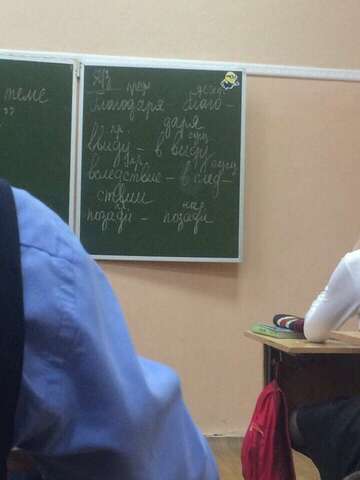 теме
??
Д/з
пред. дееприч.
Благодаря - благо-
даря
пр. сущ
ввиду - в виду
пр. сущ
вследствие - в след-
ствии
пр. нар
позади - позади